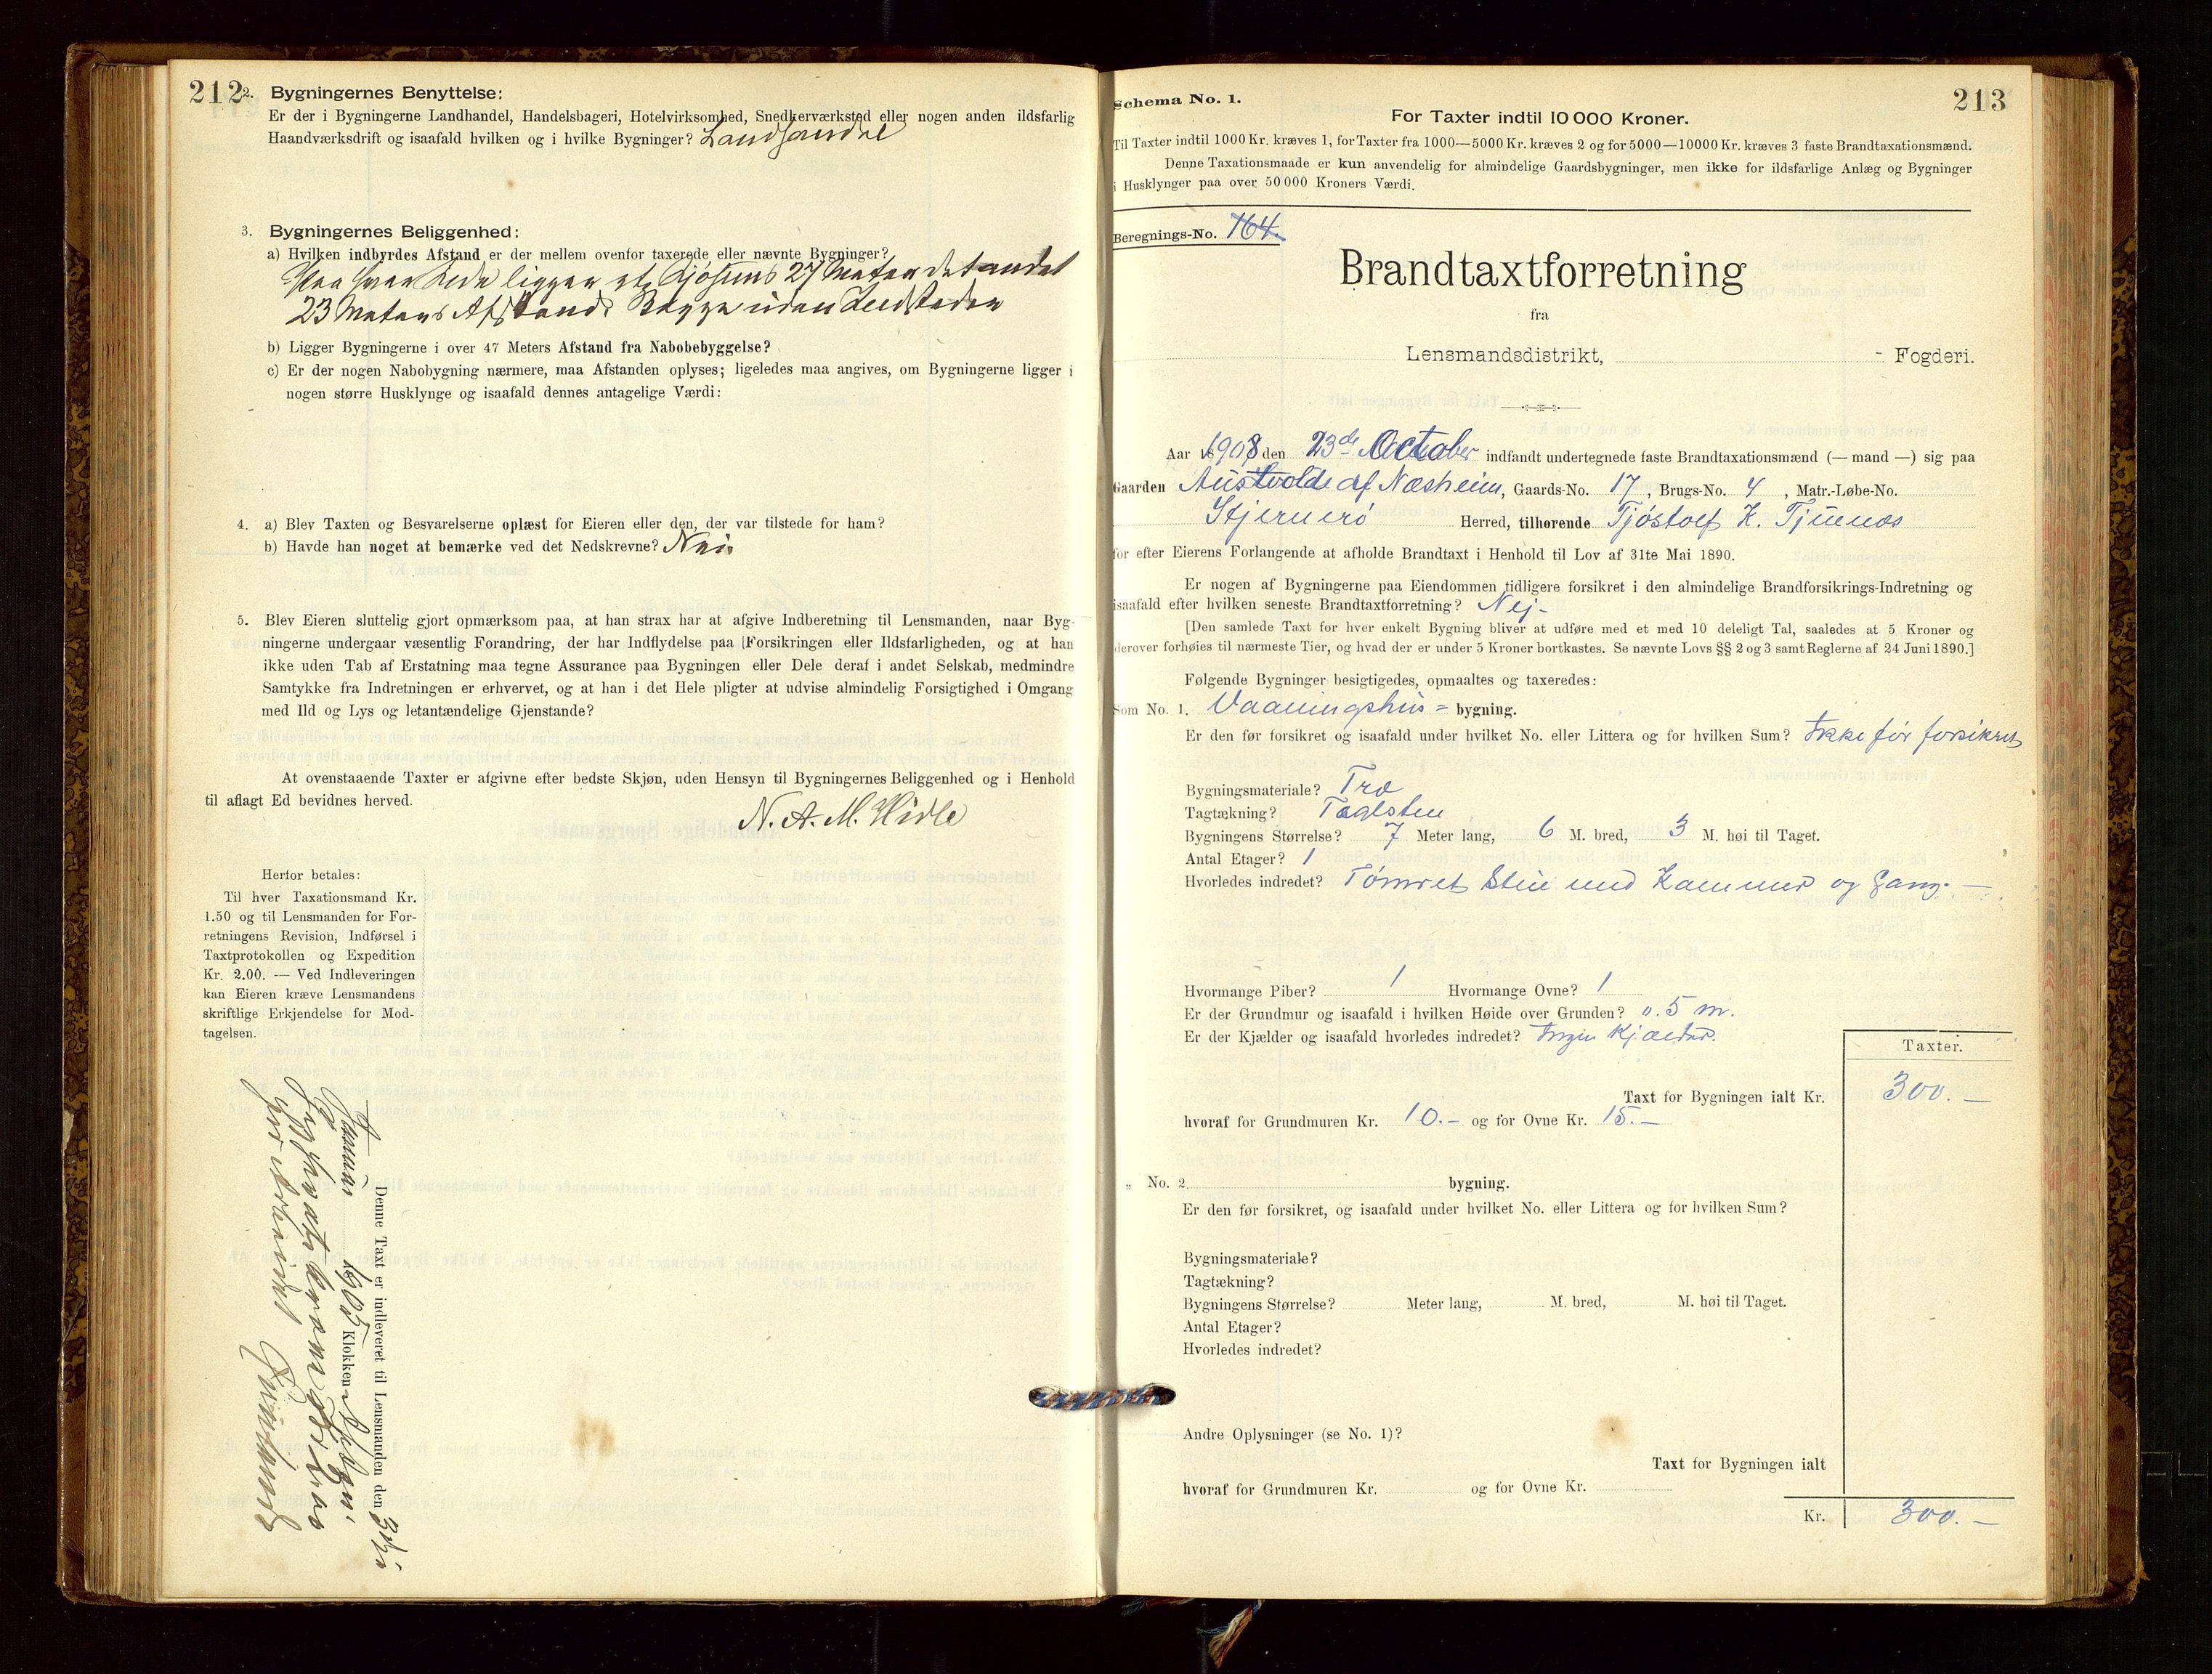 212
2. Bygningernes Benyttelse:
Er der i Bygningerne Landhandel, Handelsbageri, Hotelvirksomhed, Snedkerværksted eller nogen anden ildsfarlig
Haandværksdrift og isaafald hvilken og i hvilke Bygninger? Landhandel
3. Bygningernes Beliggenhed:
a) Hvilken indbyrdes Afstand er der mellem ovenfor taxerede eller nævnte Bygninger?
Paa hver Side ligger et Sjøhuus 27 Meter det andet
23 Meters Afstand Begge uden Ildsteder
b) Ligger Bygningerne i over 47 Meters Afstand fra Nabobebyggelse?
c) Er der nogen Nabobygning nærmere, maa Afstanden oplyses; ligeledes maa angives, om Bygningerne ligger i
nogen større Husklynge og isaafald dennes antagelige Værdi:
4. a) Blev Taxten og Besvarelserne oplæst for Eieren eller den, der var tilstede for ham?
b) Havde han noget at bemærke ved det Nedskrevne? Nei
5. Blev Eieren sluttelig gjort opmærksom paa, at han strax har at afgive Indberetning til Lensmanden, naar Byg-
ningerne undergaar væsentlig Forandring, der har Indflydelse paa Forsikringen eller Ildsfarligheden, og at han
ikke uden Tab af Erstatning maa tegne Assurance paa Bygningen eller Dele deraf i andet Selskab, medmindre
Samtykke fra Indretningen er erhvervet, og at han i det Hele pligter at udvise almindelig Forsigtighed i Omgang
med Ild og Lys og letantændelige Gjenstande?
At ovenstaaende Taxter er afgivne efter bedste Skjøn, uden Hensyn til Bygningernes Beliggenhed og i Henhold
til aflagt Ed bevidnes herved.
N. A. M. Hidle
Herfor betales:
Til hver Taxationsmand Kr.
1.50 og til Lensmanden for For-
retningens Revision, Indførsel i
Taxtprotokollen og Expedition
Kr. 2.00. — Ved Indleveringen
kan Eieren kræve Lensmandens
skriftlige Erkjendelse for Mod-
tagelsen.
Denne Taxt er indleveret til Lensmanden den 3die
Januar 1905 Klokken
213
Schema No. 1.
For Taxter indtil 10 000 Kroner.
Til Taxter indtil 1000 Kr. kræves 1, for Taxter fra 1000—5000 Kr. kræves 2 og for 5000—10000 Kr. kræves 3 faste Brandtaxationsmænd.
Denne Taxationsmaade er kun anvendelig for almindelige Gaardsbygninger, men ikke for ildsfarlige Anlæg og Bygninger
i Husklynger paa over 50 000 Kroners Værdi.
Beregnings-No. 164.
Brandtaxtforretning
fra
Lensmandsdistrikt, - Fogderi.
Aar 1908 den 23de October indfandt undertegnede faste Brandtaxationsmænd (— mand —) sig paa
Gaarden Austvolde af Næsheim, Gaards-No. 17, Brugs-No. 4, Matr.-Løbe-No.
Stjernerö Herred, tilhørende Tjöstolf K. Tjuenæs
for efter Eierens Forlangende at afholde Brandtaxt i Henhold til Lov af 31te Mai 1890.
Er nogen af Bygningerne paa Eiendommen tidligere forsikret i den almindelige Brandforsikrings-Indretning og
isaafald efter hvilken seneste Brandtaxtforretning? Nej-
[Den samlede Taxt for hver enkelt Bygning bliver at udføre med et med 10 deleligt Tal, saaledes at 5 Kroner og
derover forhøies til nærmeste Tier, og hvad der er under 5 Kroner bortkastes. Se nævnte Lovs §§ 2 og 3 samt Reglerne af 24 Juni 1890.]
Følgende Bygninger besigtigedes, opmaaltes og taxeredes:
Som No. 1. Vaaningshus = bygning.
Er den før forsikret og isaafald under hvilket No. eller Littera og for hvilken Sum? Ikke før forsikret
Bygningsmateriale? Træ
Tagtækning? Taglsten
Bygningens Størrelse? 7 Meter lang, 6 M. bred, 3 M. høi til Taget.
Antal Etager? 1
Hvorledes indredet? Tømret Stue med Kammer og Gang. —
Hvormange Piber? 1 Hvormange Ovne? 1
Er der Grundmur og isaafald i hvilken Høide over Grunden? 0.5 m.
Er der Kjælder og isaafald hvorledes indredet? Ingen Kjælder.
Taxter.
Taxt for Bygningen ialt Kr. 300. —
hvoraf for Grundmuren Kr. 10.- og for Ovne Kr. 15.-
„ No. 2 bygning.
Er den før forsikret, og isaafald under hvilket No. eller Littera og for hvilken Sum?
Bygningsmateriale?
Tagtækning?
Bygningens Størrelse? Meter lang, M. bred, M. høi til Taget.
Antal Etager?
Hvorledes indredet?
Andre Oplysninger (se No. 1)?
Taxt for Bygningen ialt
hvoraf for Grundmuren Kr. og for Ovne Kr.
Kr. 300. —